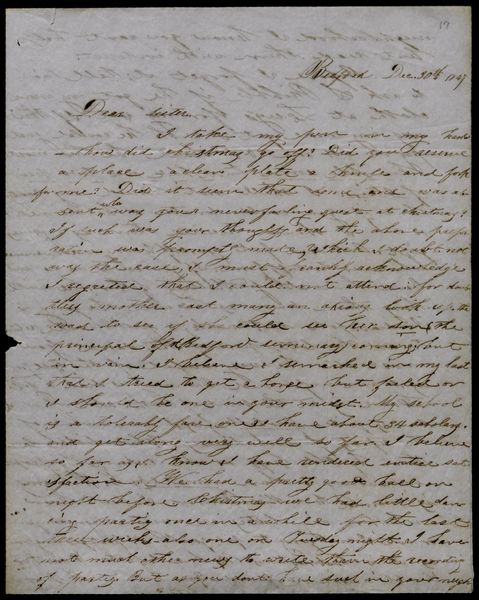 17
Bedford Dec. 30th 1847
Dear sister.
I take my pen in my hand
how did christmas go off? Did you reserve
a place a clean plate a knife and fork
for me? Did it seem that some one was ab
sent who was your never failing guest at christmas?
If such was your thoughts, and the above prepa
ration was promptly made, which I doubt not
was the case, I must candidly acknowledge
I regretted that I could not attend for doubt
less mother cast many an anxious look up the
road to see if she could see her son, the
principal of Bedford seminary coming but
in vain. I believe I remarked in my last
that I tried to get a horse but failed or
I should be one in your midst. My school
is a tolerably fair one I have about 34 scholars.
and get along very well so far I believe
so far as I know I have rendered entire sat
isfaction We had a pretty good ball on
night before Christmas we had little dan
cing partys once in a while for the last
three weeks also one on Tuesday night. I have
not much other news to write than the recording
of partys But as you dont have such in your neigh